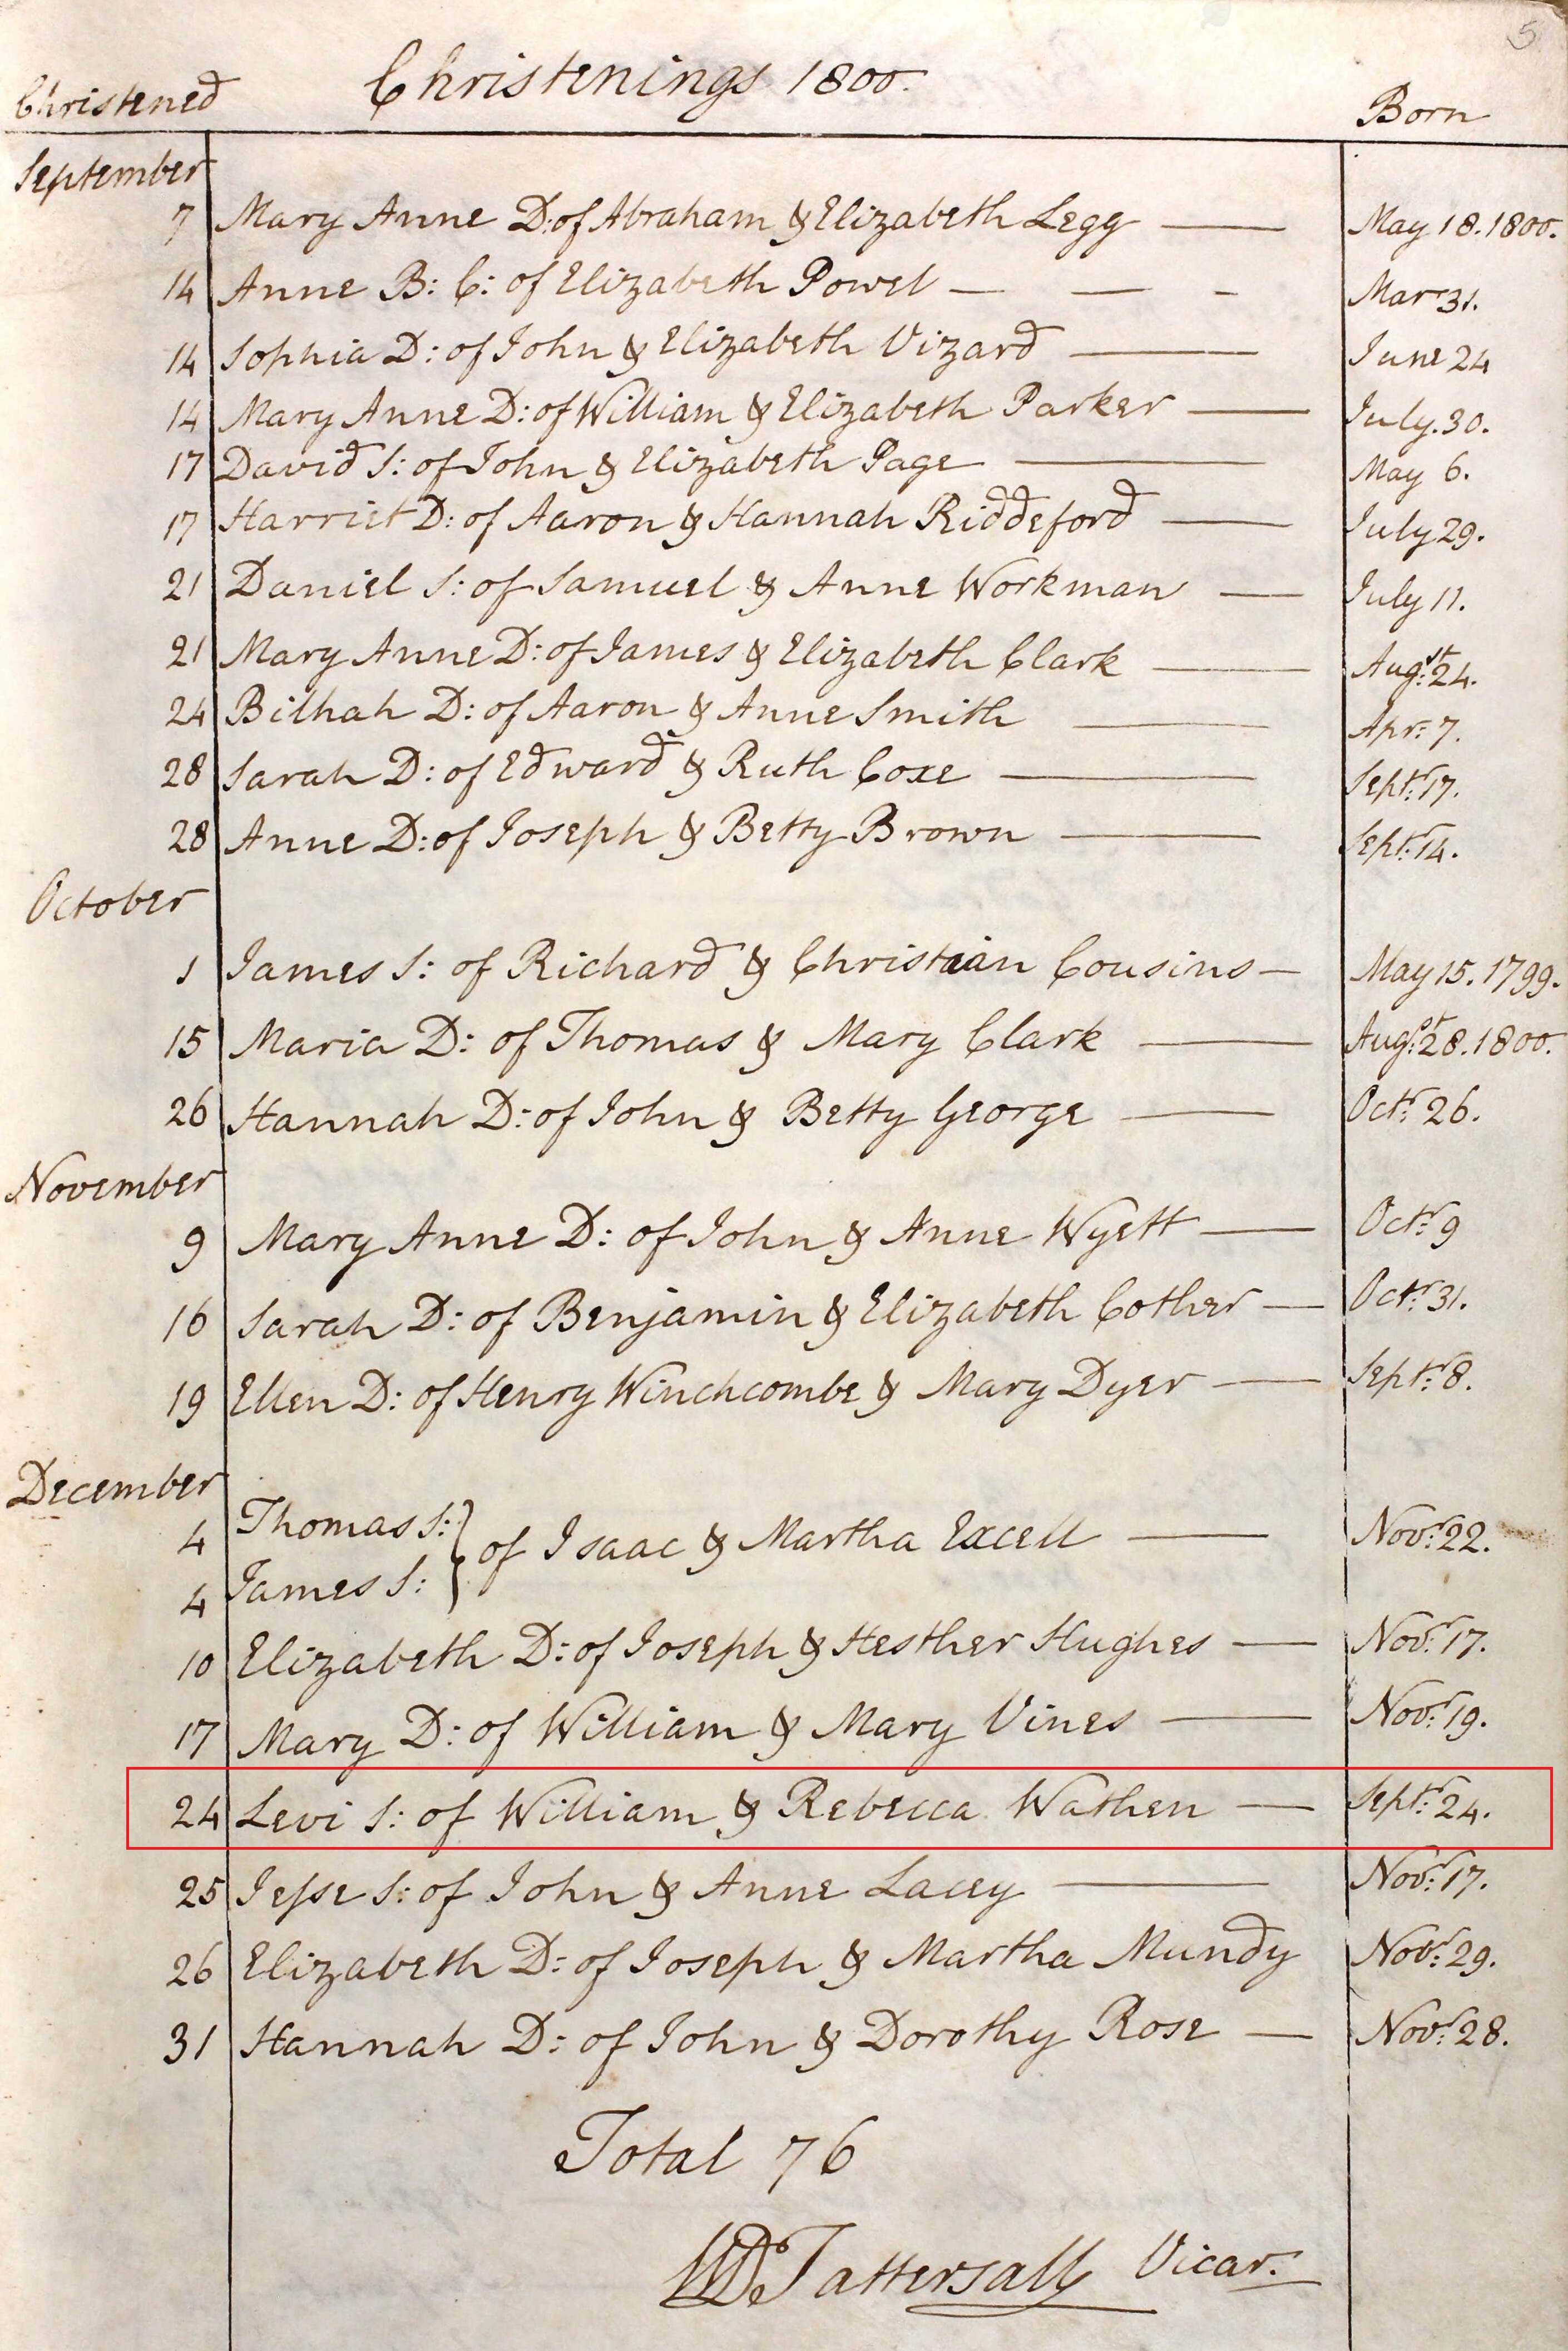 5
Christened Christenings 1800. Born
September
7 Mary Anne D: of Abraham & Elizabeth Legg — May 18. 1800.
14 Anne B: C: of Elizabeth Powel — — - Mar 31.
14 Sophia D: of John & Elizabeth Vizard — June 24
14 Mary Anne D: of William & Elizabeth Parker — July. 30.
17 David S: of John & Elizabeth Page — May 6.
17 Harriet D: of Aaron & Hannah Riddeford — July 29.
21 Daniel S: of Samuel & Anne Workman — July 11.
21 Mary Anne D: of James & Elizabeth Clark — Augst: 24.
24 Bilhah D: of Aaron & Anne Smith — Apr: 7.
28 Sarah D: of Edward & Ruth Coxe — Septr: 17.
28 Anne D: of Joseph & Betty Brown — Septr: 14.
October
1 James S: of Richard & Christian Cousins — May 15. 1799.
15 Maria D: of Thomas & Mary Clark — Augst: 28. 1800.
26 Hannah D: of John & Betty George — Octr: 26.
November
9 Mary Anne D: of John & Anne Wyett — Octr: 9
16 Sarah D: of Benjamin & Elizabeth Cother — Octr: 31.
19 Ellen D: of Henry Winchcombe & Mary Dyer — Septr: 8.
December
4 Thomas S: } of Isaac & Martha Excell — Novr: 22.
4 James S:
10 Elizabeth D: of Joseph & Hesther Hughes — Novr: 17.
17 Mary D: of William & Mary Vines — Novr: 19.
24 Levi S: of William & Rebecca Wathen — Septr: 24.
25 Jesse S: of John & Anne Lacey — Novr: 17.
26 Elizabeth D: of Joseph & Martha Mundy Novr: 29.
31 Hannah D: of John & Dorothy Rose — Novr: 28.
Total 76
WD Tattersall Vicar.